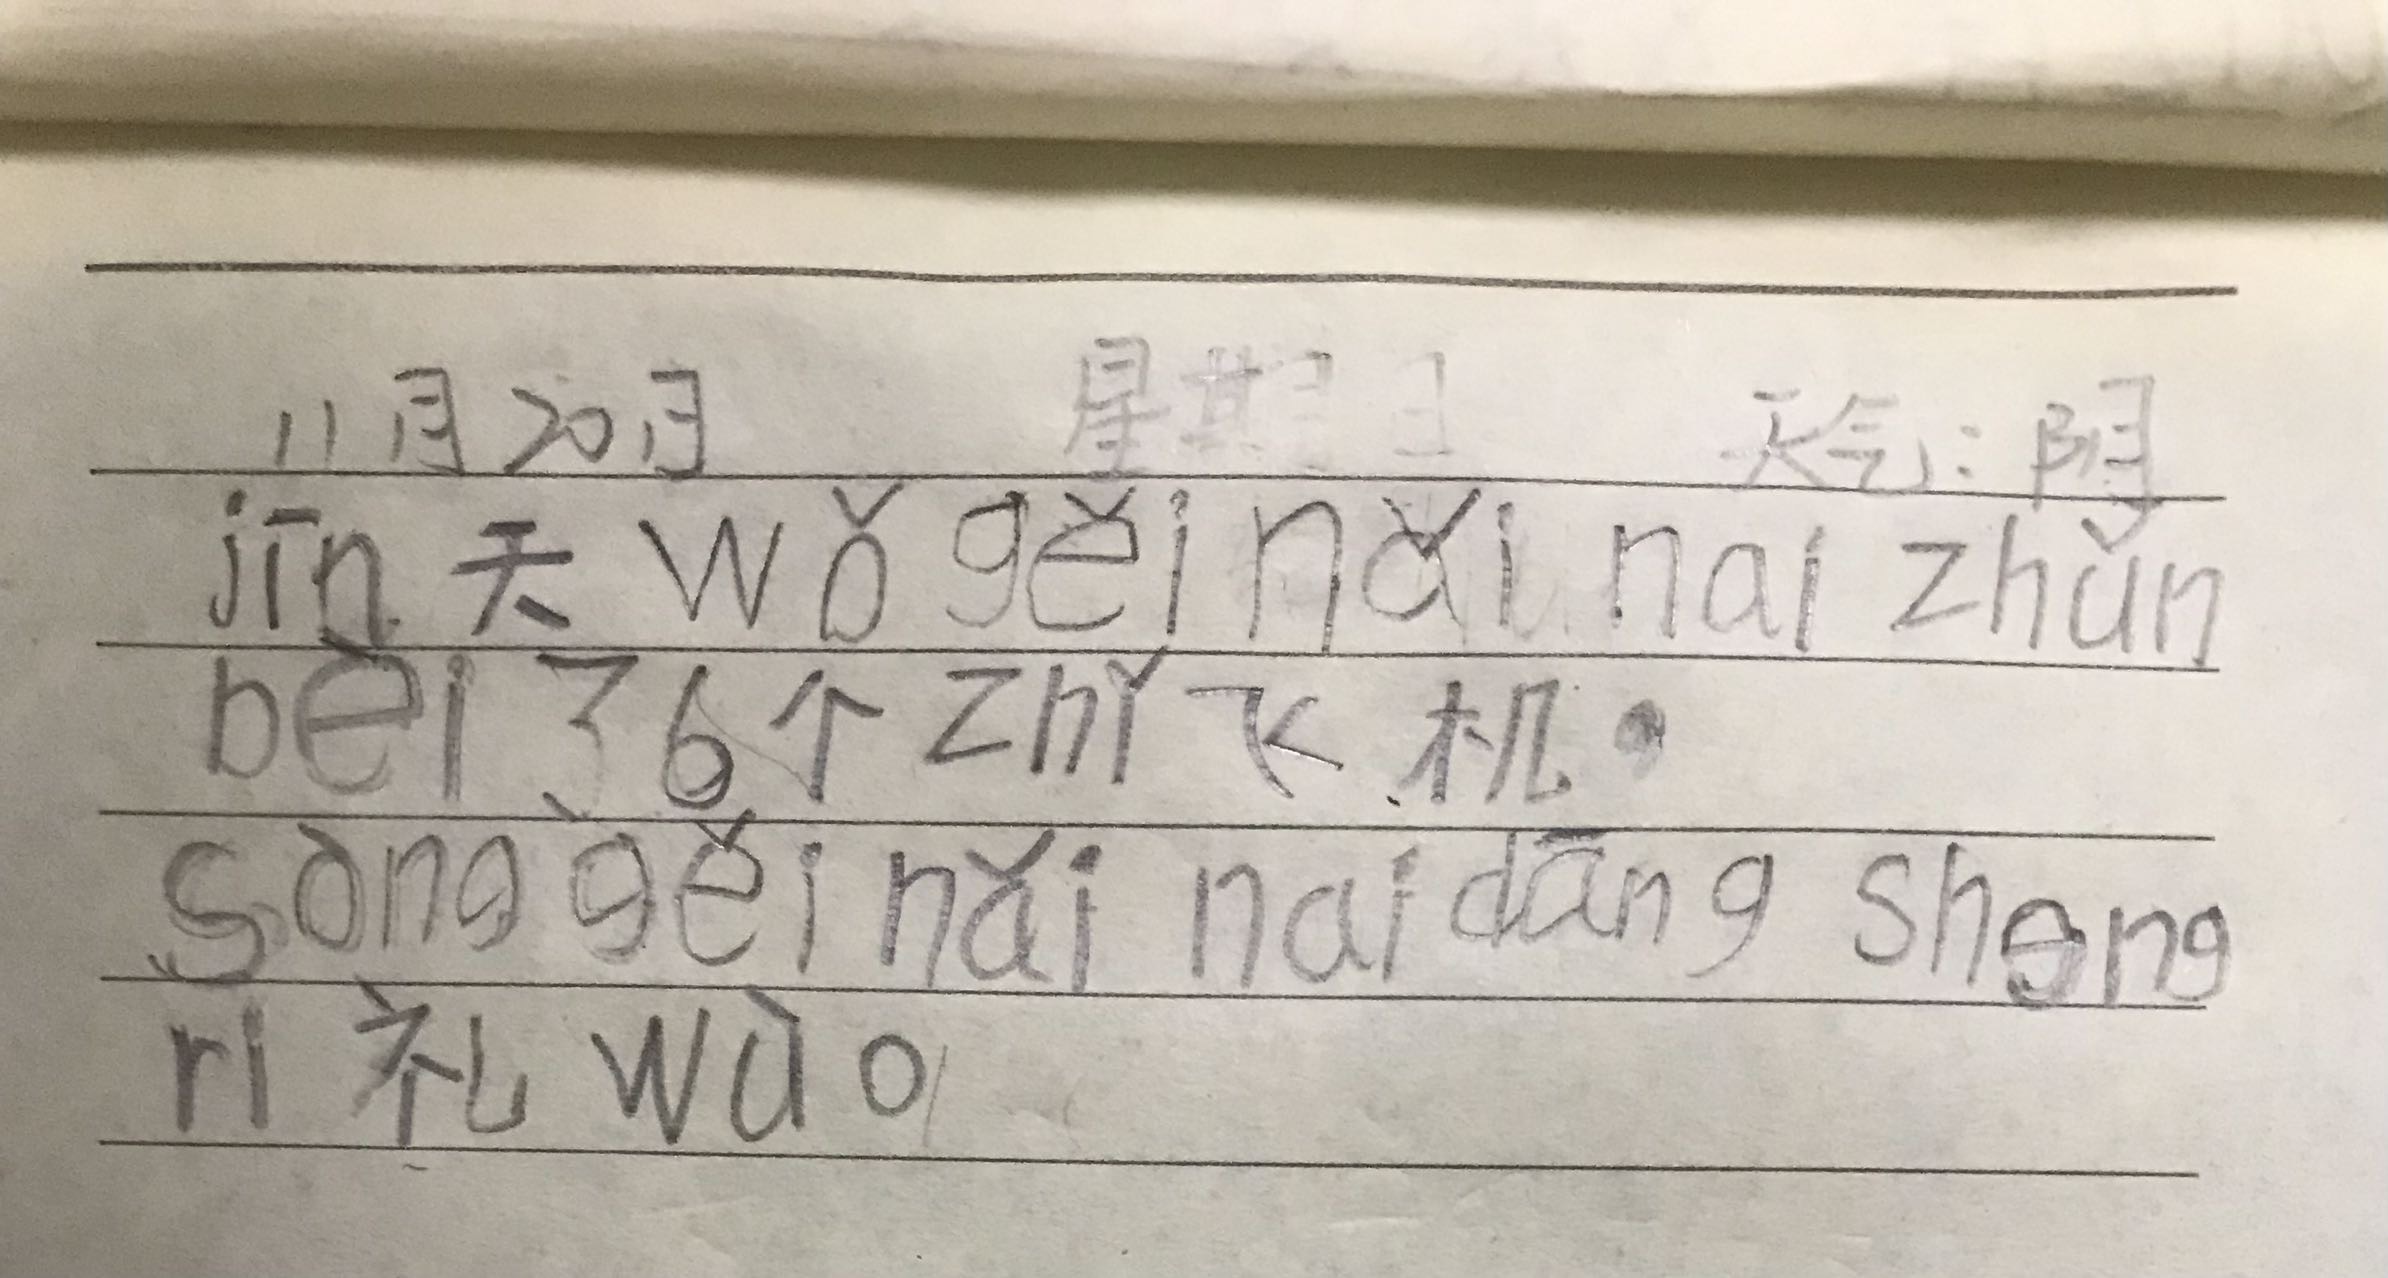 11月20日 星期日 天气：阴
jīn 天 wǒ gěi nǎi nai zhǔn
bèi 了6个 zhǐ 飞机，
sòng gěi nǎi nai dāng sheng
ri 礼 wù。